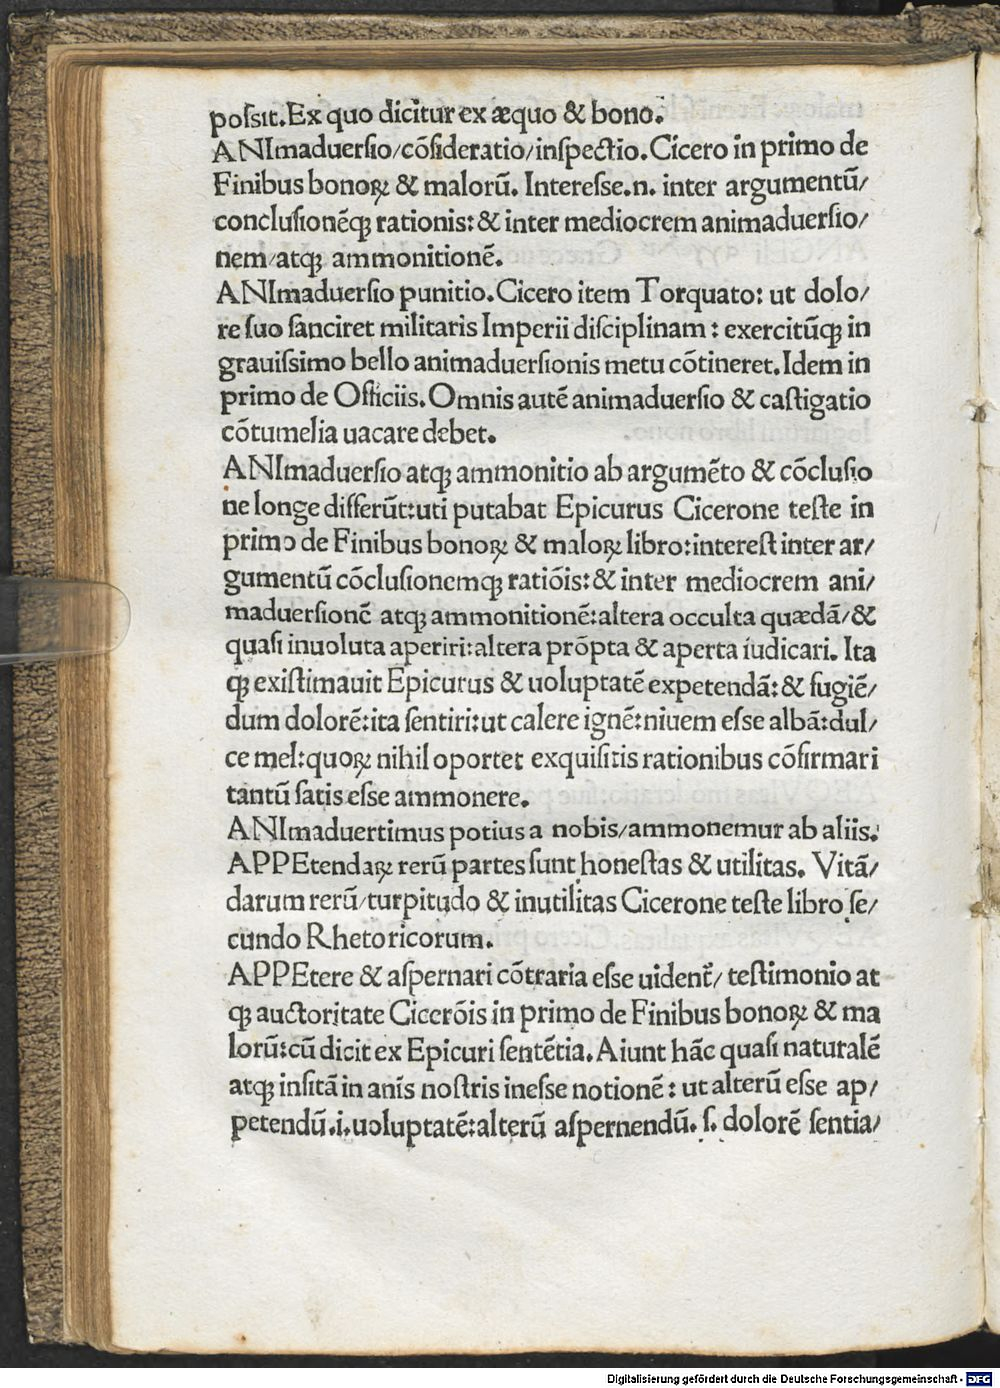 possit.Ex quo dicitur ex æquo & bono.
ANImaduersio/cõsideratio/inspectio.Cicero in primo de
Finibus bonoꝝ & malorũ. Interesse.n. inter argumentũ/
conclusionẽqꝫ rationis:& inter mediocrem animaduersio/
nem/atqꝫ ammonitionẽ.
ANImaduersio punitio.Cicero item Torquato: ut dolo/
re suo sanciret militaris Imperii disciplinam : exercitũqꝫ in
grauissimo bello animaduersionis metu cõtineret.Idem in
primo de Officiis.Omnis autẽ animaduersio & castigatio
cõtumelia uacare debet.
ANImaduersio atqꝫ ammonitio ab argumẽto & cõclusio
ne longe differũt:uti putabat Epicurus Cicerone teste in
primo de Finibus bonoꝝ & maloꝝ libro:interest inter ar/
gumentũ cõclusionemqꝫ ratiõis:& inter mediocrem ani/
maduersionẽ atqꝫ ammonitionẽ:altera occulta quædã/&
quasi inuoluta aperiri:altera prõpta & aperta iudicari. Ita
qꝫ existimauit Epicurus & uoluptatẽ expetendã:& fugiẽ/
dum dolorẽ:ita sentiri:ut calere ignẽ:niuem esse albã:dul/
ce mel:quoꝝ nihil oportet exquisitis rationibus cõfirmari
tantũ satis esse ammonere.
ANImaduertimus potius a nobis/ammonemur ab aliis.
APPEtendaꝝ rerũ partes sunt honestas & utilitas. Vitã/
darum rerũ/turpitudo & inutilitas Cicerone teste libro se/
cundo Rhetoricorum.
APPEtere & aspernari cõtraria esse uident̃/ testimonio at
qꝫ auctoritate Cicerõis in primo de Finibus bonoꝝ & ma
lorũ:cũ dicit ex Epicuri sentẽtia.Aiunt hãc quasi naturalẽ
atqꝫ insitã in anĩs nostris inesse notionẽ : ut alterũ esse ap/
petendũ.i.uoluptatẽ:alterũ aspernendũ. s. dolorẽ sentia/
Digitalisierung gefördert durch die Deutsche Forschungsgemeinschaft - DFG